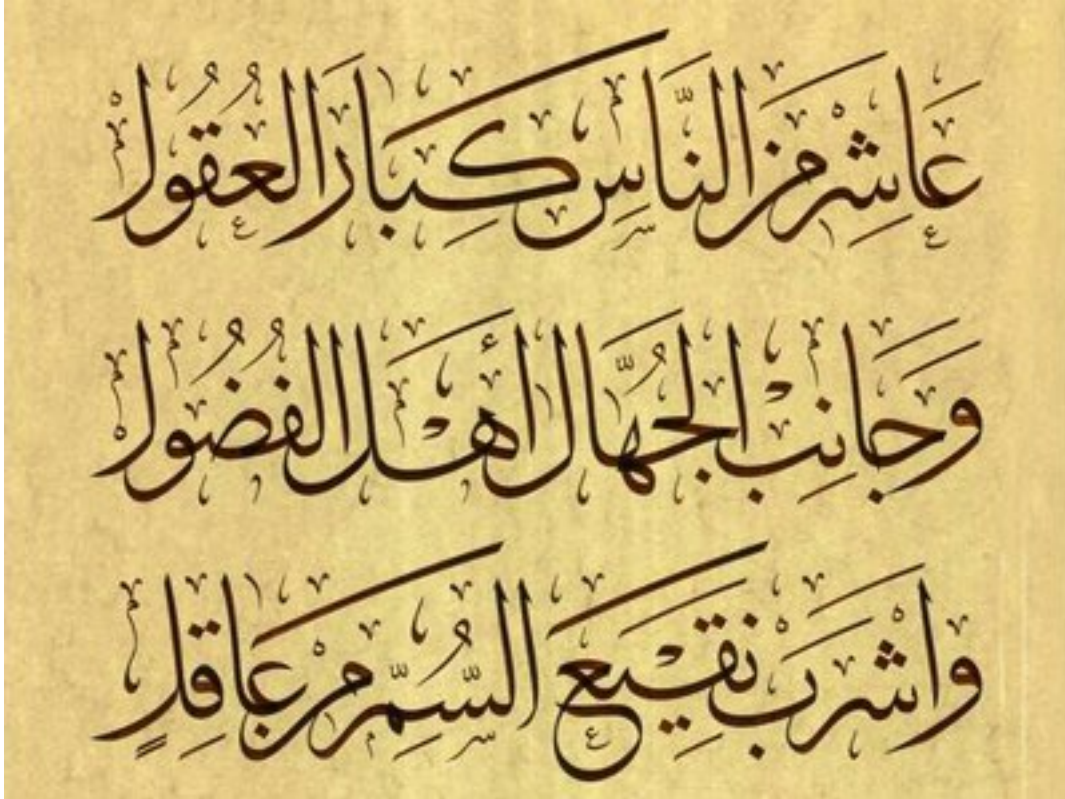 عَاشِرْ مِنَ النَّاسِ كِبَارَ العُقُولْ
وَجَانِبْ الجُهَّالَ أَهْلَ الفُضُولْ
وَاشْرَبْ نَقِيْعَ السُّمِّ مِنْ عَاقِلٍ